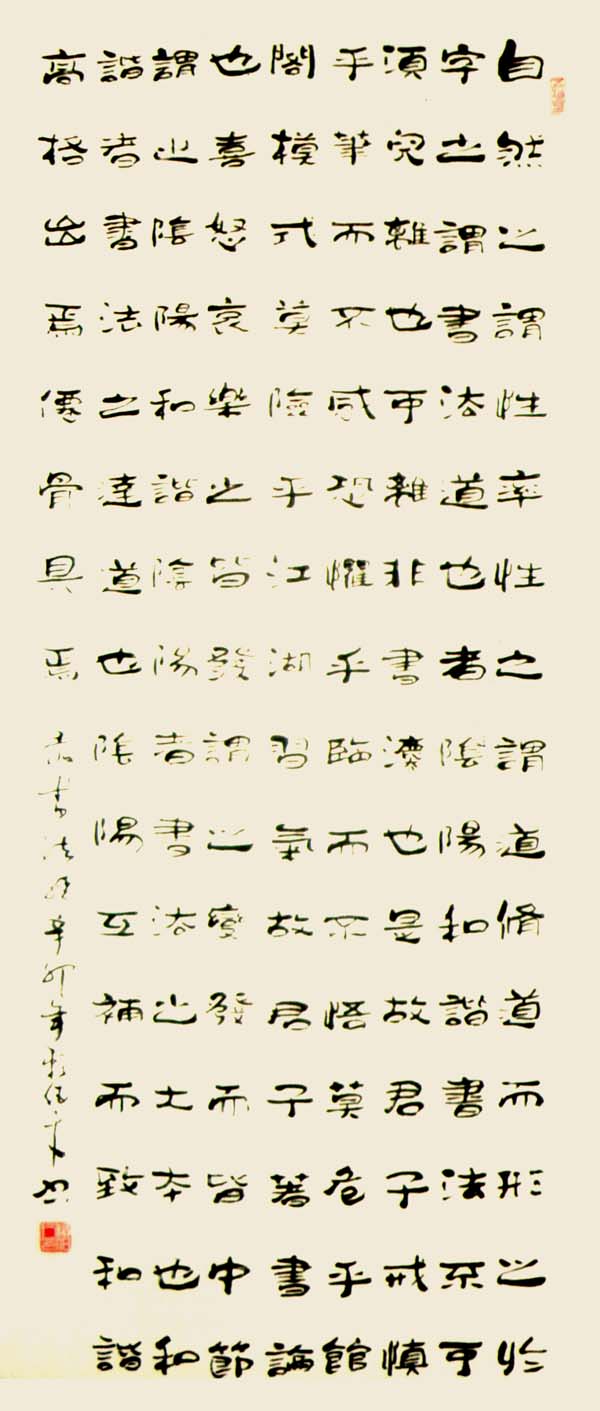 自然之謂性率性之謂道脩道而形之於
字之謂書法道也者陰陽和諧書法不可
須臾離也可離非書灋也是故君子戒慎
乎筆而不感恐懼乎臨而不悟莫危乎館
閣模式莫險乎江湖習氣故君子著書論
也喜怒哀樂之皆發謂之變發而皆中節
謂之陰陽和諧陰陽者書法之大本也和
諧者書法之達道也陰陽互補而致和諧
高格出焉僊骨具焉
書法辛卯年